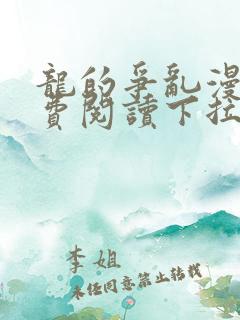 龍的爭亂漫
費閱讀下拉
李姐
未经同意禁止转载